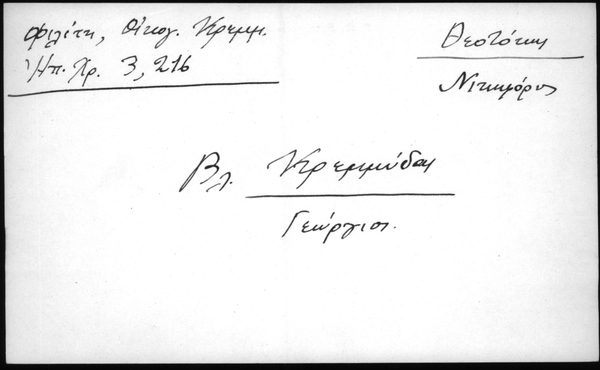 Φιλίτη, Οἰκογ. Κρεμμ.
Ἠπ. Χρ. 3, 216
Θεοτόκης
Νικηφόρος
Βλ. Κρεμμύδας
Γεώργιος.